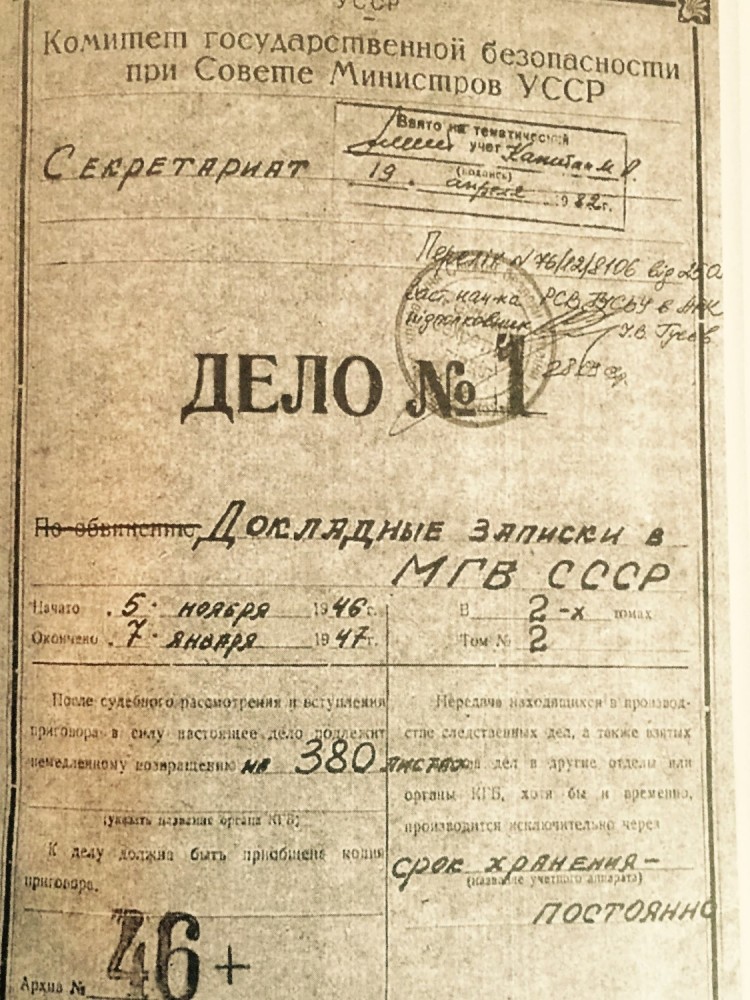 УССР
Комитет государственной безопасности
при Совете Министров УССР
Секретариат
Взято на тематический
учет Капитан М.
(подпись)
19. апреля 1982г.
Перелік № 76/12/8106 від
заст. нач-ка РСВ ГУСБУ в АРК
підполковник І.В. Гусев
ДЕЛО № 1
По обвинению Докладные записки в
МГБ СССР
Начато 5. ноября 1946г.
Окончено 7. января 1947г.
В 2-х томах
Том № 2
После судебного рассмотрения и вступления
приговора в силу настоящее дело подлежит
немедленному возвращению на 380 листах
(указать название органа КГБ)
К делу должна быть приобщена копия
приговора.
Архив № 46+
Передача находящихся в производ-
стве следственных дел, а также взятых
дел в другие отделы или
органы КГБ, хотя бы и временно,
производится исключительно через
срок хранения-
(название учетного аппарата)
постоянно